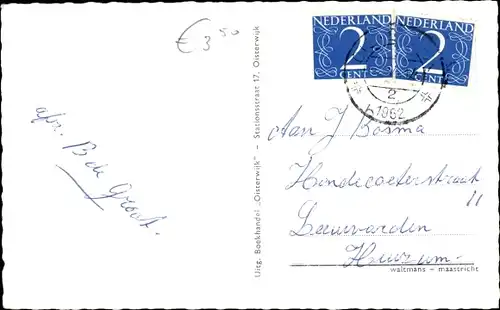 € 3 50
NEDERLAND
2
CENT
NEDERLAND
2
CENT
2
1952
afz. B de Groot.
Uitg. Boekhandel „Oisterwijk" – Stationsstraat 17, Oisterwijk
Aan J Bosma
Hondecoeterstraat
11
Leeuwarden
Huizum.
waltmans – maastricht